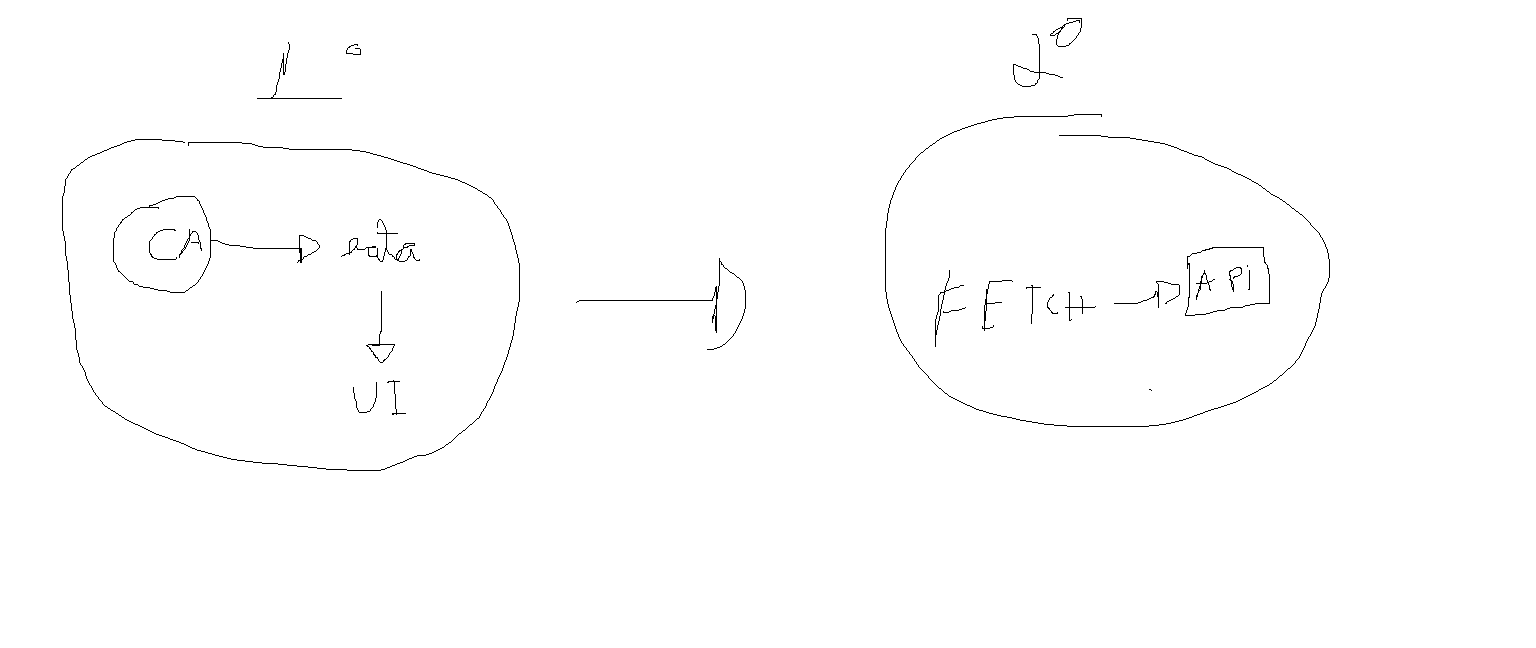 1º
2º
CA
data
UI
FETCH
API